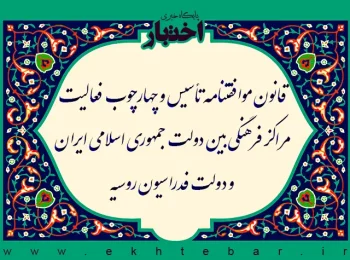 پایگاه خبری
اختبار
قانون موافقتنامه تأسیس و چهارچوب فعالیت
مراکز فرهنگی بین دولت جمهوری اسلامی ایران
و دولت فدراسیون روسیه
www.ekhtebar.ir